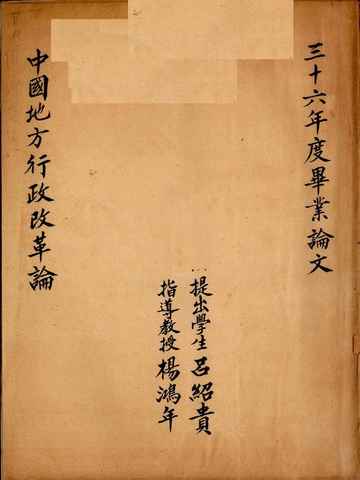 三十六年度畢業論文
提出學生 呂紹貴
指導教授 楊鴻年
中國地方行政改革論